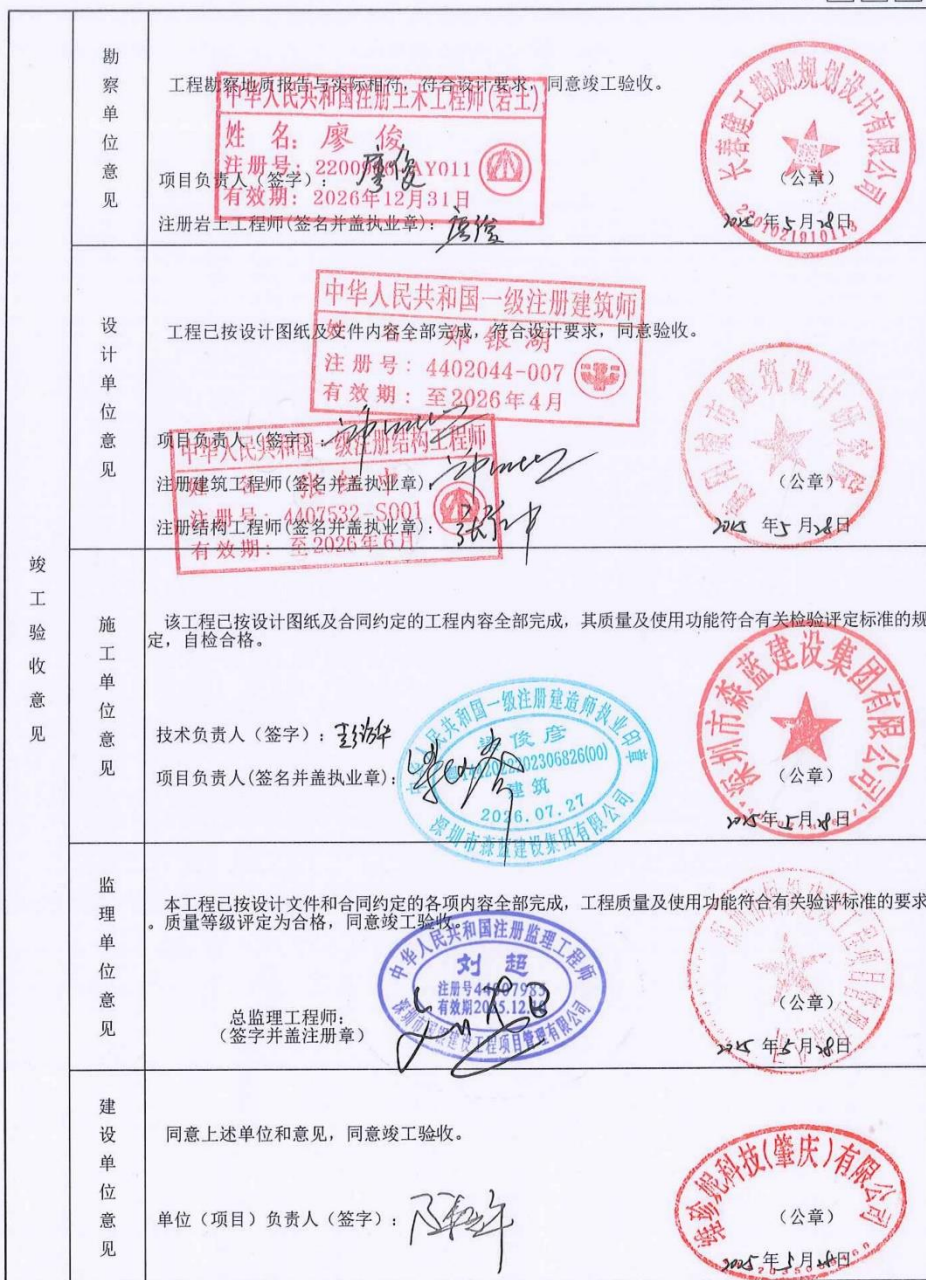 竣工验收意见
勘察单位意见
工程勘察地质报告与实际相符，符合设计要求，同意竣工验收。
中华人民共和国注册土木工程师(岩土)
姓 名：廖 俊
注册号：
AY011
有效期：2026年12月31日
项目负责人（签字）：廖俊
注册岩土工程师(签名并盖执业章)：廖俊
长春建工勘测规划设计有限公司
（公章）
2025年5月28日
设计单位意见
工程已按设计图纸及文件内容全部完成，符合设计要求，同意验收。
中华人民共和国一级注册建筑师
姓 名 郑银湖
注册号：4402044-007
有效期：至2026年4月
项目负责人（签字）：
中华人民共和国一级注册结构工程师
注册建筑工程师(签名并盖执业章)：
注册号：4407532-S001
注册结构工程师(签名并盖执业章)：
有效期：至2026年6月
市建筑设计研究院
（公章）
2025年5月28日
施工单位意见
该工程已按设计图纸及合同约定的工程内容全部完成，其质量及使用功能符合有关检验评定标准的规
定，自检合格。
技术负责人（签字）：
项目负责人(签名并盖执业章)：
共和国一级注册建造师执业印章
俊彦
建筑
2026.07.27
深圳市森蓝建设集团有限公司
深圳市森蓝建设集团有限公司
（公章）
2025年5月28日
监理单位意见
本工程已按设计文件和合同约定的各项内容全部完成，工程质量及使用功能符合有关验评标准的要求
。质量等级评定为合格，同意竣工验收。
中华人民共和国注册监理工程师
刘 超
注册号
有效期
建设工程项目管理有限公司
总监理工程师：
（签字并盖注册章）
（公章）
2025年5月28日
建设单位意见
同意上述单位和意见，同意竣工验收。
单位（项目）负责人（签字）：
科技(肇庆)有限公司
（公章）
2025年5月28日